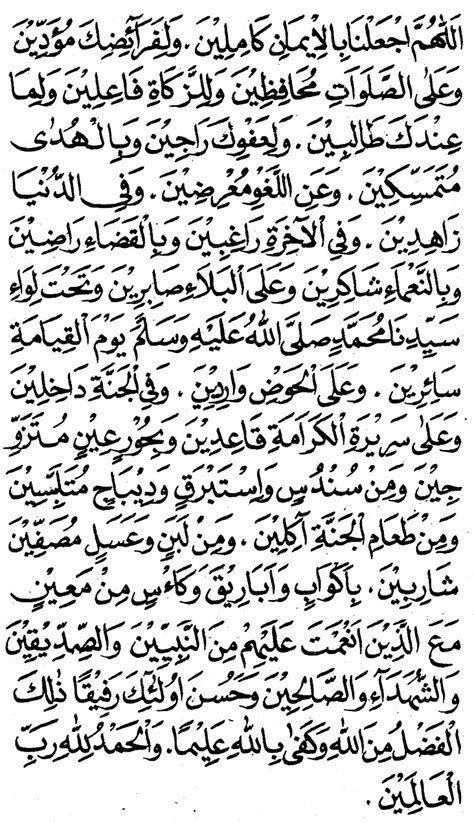 اَللّٰهُمَّ اجْعَلْنَا بِالْاِيْمَانِ كَامِلِيْنَ. وَلِفَرَآئِضِكَ مُؤَدِّيْنَ
وَعَلَى الصَّلَوَاتِ مُحَافِظِيْنَ وَلِلزَّكَاةِ فَاعِلِيْنَ وَلِمَا
عِنْدَكَ طَالِبِيْنَ. وَلِعَفْوِكَ رَاجِيْنَ وَبِالْهُدٰى
مُتَمَسِّكِيْنَ. وَعَنِ اللَّغْوِ مُعْرِضِيْنَ. وَفِى الدُّنْيَا
زَاهِدِيْنَ. وَفِى الْاٰخِرَةِ رَاغِبِيْنَ وَبِالْقَضَاءِ رَاضِيْنَ
وَبِالنَّعْمَاءِ شَاكِرِيْنَ وَعَلَى الْبَلَاءِ صَابِرِيْنَ وَتَحْتَ لِوَاءِ
سَيِّدِنَا مُحَمَّدٍ صَلَّى اللهُ عَلَيْهِ وَسَلَّمَ يَوْمَ الْقِيَامَةِ
سَائِرِيْنَ. وَعَلَى الْحَوْضِ وَارِدِيْنَ. وَفِى الْجَنَّةِ دَاخِلِيْنَ
وَعَلٰى سَرِيْرَةِ الْكَرَامَةِ قَاعِدِيْنَ وَبِحُوْرٍعِيْنٍ مُتَزَوِّ
جِيْنَ وَمِنْ سُنْدُسٍ وَاِسْتَبْرَقٍ وَدِيْبَاجٍ مُتَلَبِّسِيْنَ
وَمِنْ طَعَامِ الْجَنَّةِ آكِلِيْنَ. وَمِنْ لَبَنٍ وَعَسَلٍ مُصَفَّيْنَ
شَارِبِيْنَ. بِاَكْوَابٍ وَاَبَارِيْقَ وَكَاْسٍ مِنْ مَعِيْنٍ
مَعَ الَّذِيْنَ اَنْعَمْتَ عَلَيْهِمْ مِنَ النَّبِيِّيْنَ وَالصِّدِّيْقِيْنَ
وَالشُّهَدَآءِ وَالصَّالِحِيْنَ وَحَسُنَ اُولٰئِكَ رَفِيْقًا ذٰلِكَ
الْفَضْلُ مِنَ اللهِ وَكَفٰى بِاللهِ عَلِيْمًا. وَالْحَمْدُ لِلّٰهِ رَبِّ
الْعَالَمِيْنَ.